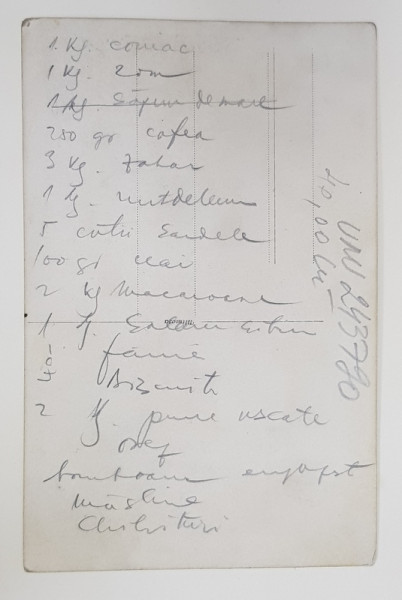 1 Kg. coniac
1 Kg. rom
1 Kg. Săpun de mare
250 gr cafea
3 Kg. Zahar
1 Kg. untdelemn
5 cutii Sardele
100 gr ceai
2 Kg Macaroane
1 Kg.
făină
Biscuiti
2 Kg. prune uscate
bomboane
Măsline
Chibrituri
40,00 lei
UNV 243780